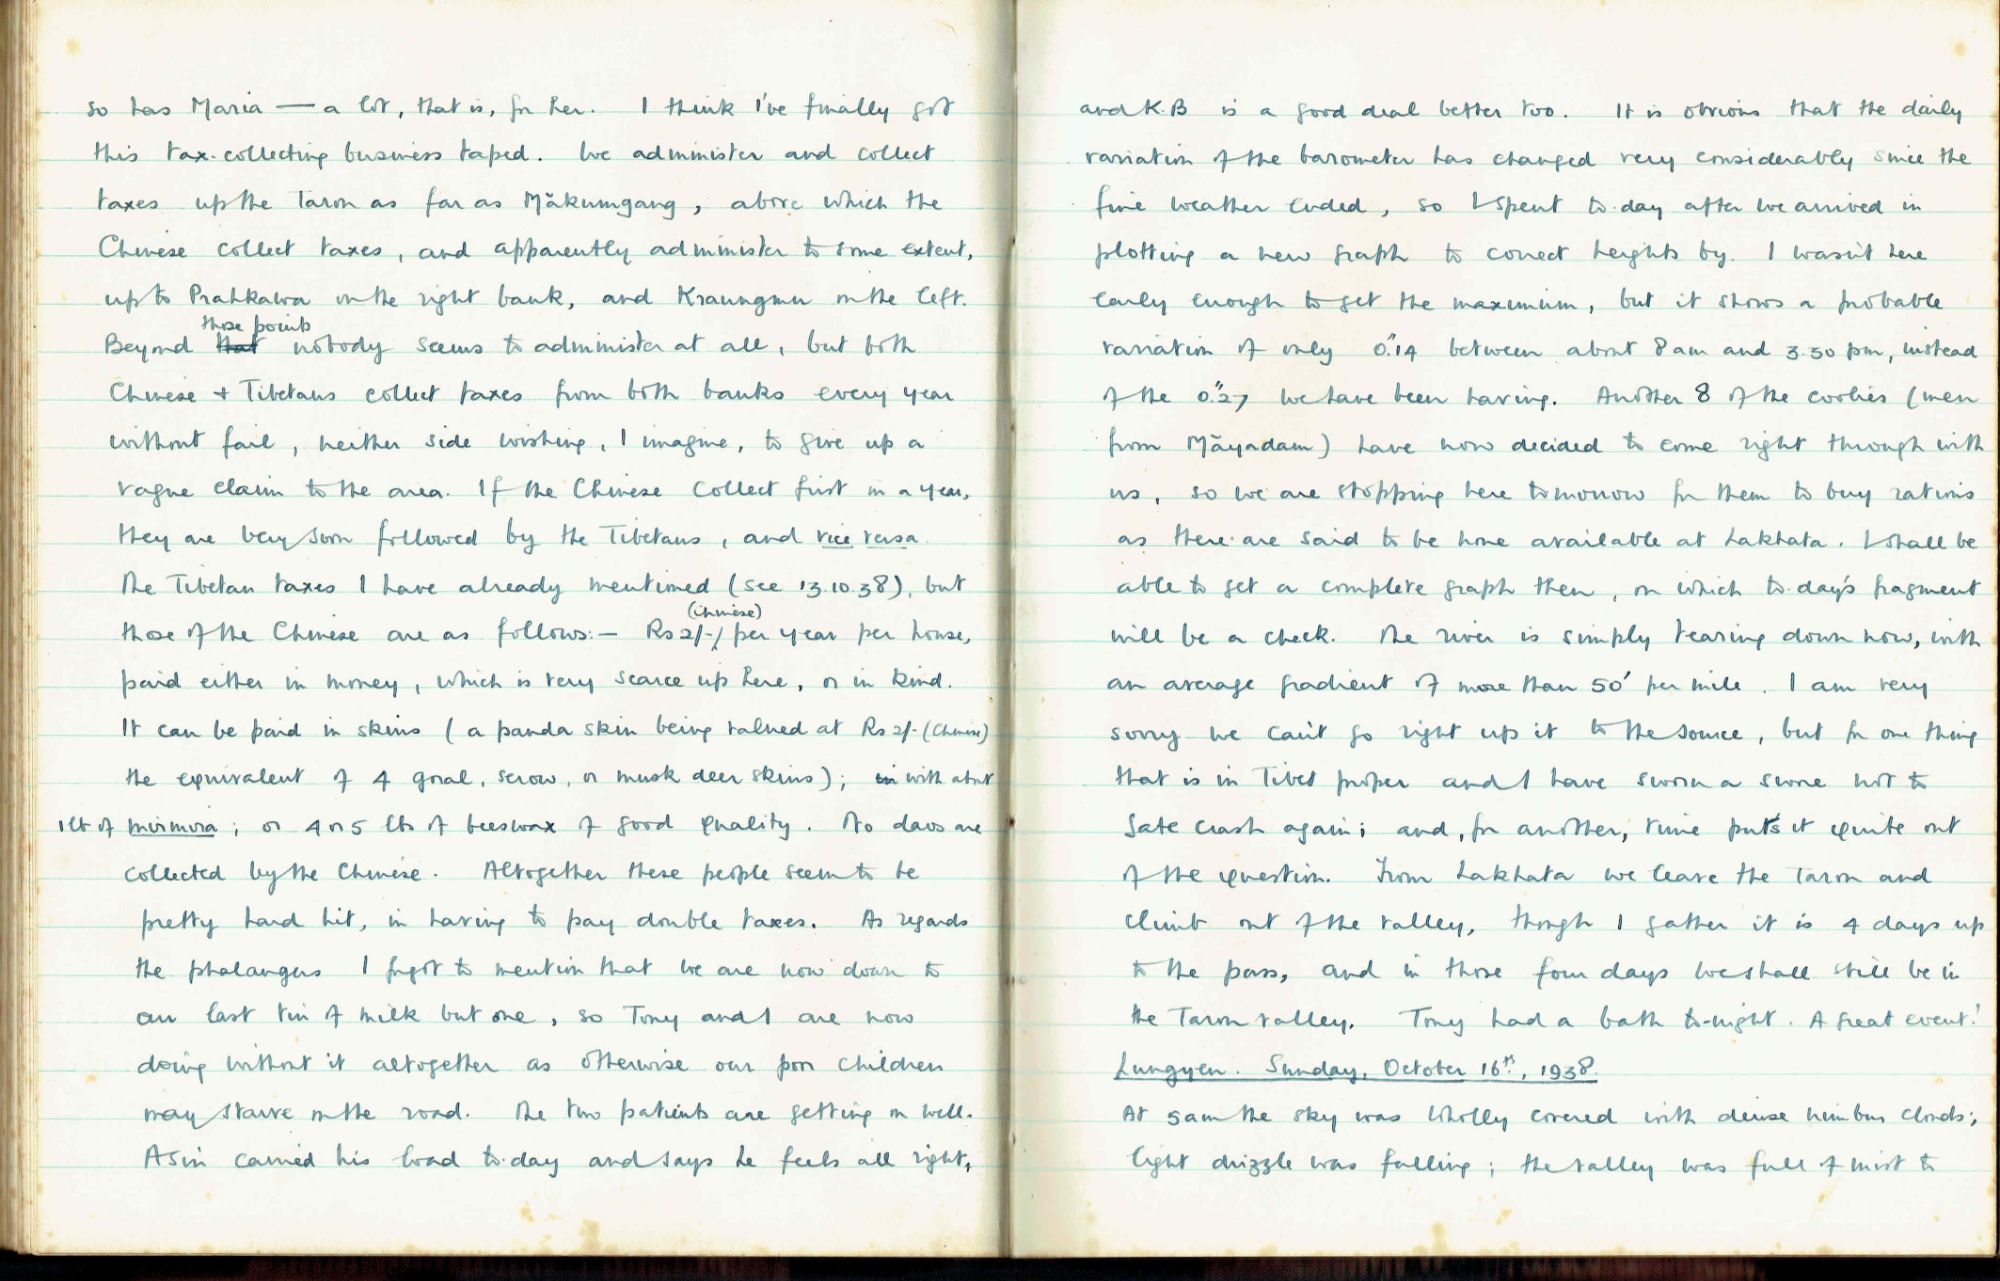 so has Maria — a lot, that is, for her. I think I've finally got
this tax-collecting business taped. We administer and collect
taxes up the Taron as far as Mākumgang, above which the
Chinese collect taxes, and apparently administer to some extent,
up to Prahkawa on the right bank, and Kraungmu on the left.
those points
Beyond that nobody seems to administer at all, but both
Chinese + Tibetans collect taxes from both banks every year
without fail, neither side wishing, I imagine, to give up a
vague claim to the area. If the Chinese collect first in a year,
they are very soon followed by the Tibetans, and vice versa.
The Tibetan taxes I have already mentioned (see 13.10.38), but
(Chinese)
those of the Chinese are as follows:— Rs 2/- per year per house,
paid either in money, which is very scarce up here, or in kind.
It can be paid in skins (a panda skin being valued at Rs 2/- (Chinese)
the equivalent of 4 goral, serow, or musk deer skins); in with about
1 lb of mismora; or 4 or 5 lbs of beeswax of good quality. No daos are
collected by the Chinese. Altogether these people seem to be
pretty hard hit, in having to pay double taxes. As regards
the phalangers I forgot to mention that we are now down to
our last tin of milk but one, so Tony and I are now
doing without it altogether as otherwise our poor children
may starve on the road. The two patients are getting on well.
Asin carried his load to-day and says he feels all right,
and K.B is a good deal better too. It is obvious that the daily
variation of the barometer has changed very considerably since the
fine weather ended, so I spent to-day after we arrived in
plotting a new graph to correct heights by. I wasn't here
early enough to get the maximum, but it shows a probable
variation of only 0."14 between about 8 am and 3.30 pm, instead
of the 0."27 we have been having. Another 8 of the coolies (men
from Māyadam) have now decided to come right through with
us, so we are stopping here tomorrow for them to buy rations
as there are said to be none available at Lakhata. I shall be
able to get a complete graph then, on which to-day's fragment
will be a check. The river is simply tearing down now, with
an average gradient of more than 50' per mile. I am very
sorry we can't go right up it to the source, but for one thing
that is in Tibet proper and I have sworn a swore not to
gate crash again; and, for another, time puts it quite out
of the question. From Lakhata we leave the Taron and
climb out of the valley, though I gather it is 4 days up
to the pass, and in those four days we shall still be in
the Taron valley. Tony had a bath to-night. A great event!
Lungyen. Sunday, October 16th, 1938.
At 5am the sky was wholly covered with dense nimbus clouds;
light drizzle was falling; the valley was full of mist to